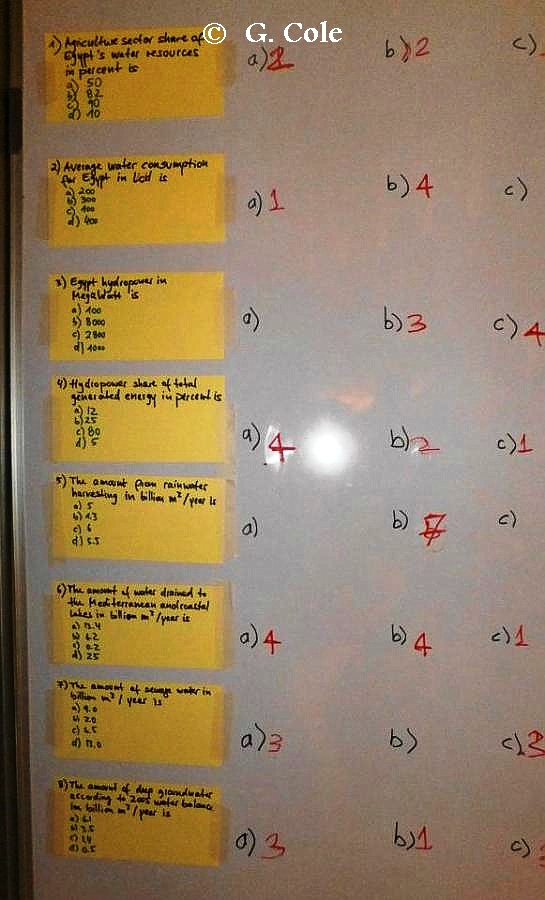 © G. Cole
1) Agriculture sector share of
Egypt's water resources
in percent is
a) 50
b) 82
c) 90
d) 10
a) b) 2 c)
2) Average water consumption
for Egypt in l/cd is
a) 200
b) 300
c) 100
d) 400
a) 1 b) 4 c)
3) Egypt hydropower in
MegaWatt is
a) 100
b) 8000
c) 2800
d) 1000
a) b) 3 c) 4
4) Hydropower share of total
generated energy in percent is
a) 12
b) 25
c) 80
d) 5
a) 4 b) 2 c) 1
5) The amount from rainwater
harvesting in billion m³/year is
a) 5
b) 1.3
c) 6
d) 5.5
a) b) c)
6) The amount of water drained to
the Mediterranean and coastal
lakes in billion m³/year is
a) 12.4
b) 6.2
c) 0.2
d) 25
a) 4 b) 4 c) 1
7) The amount of sewage water in
billion m³ / year is
a) 9.0
b) 2.0
c) 6.5
d) 13.0
a) 3 b) c) 3
8) The amount of deep groundwater
according to 2005 water balance
in billion m³/year is
a) 6.1
b) 3.5
c)
d) 0.5
a) 3 b) 1 c)